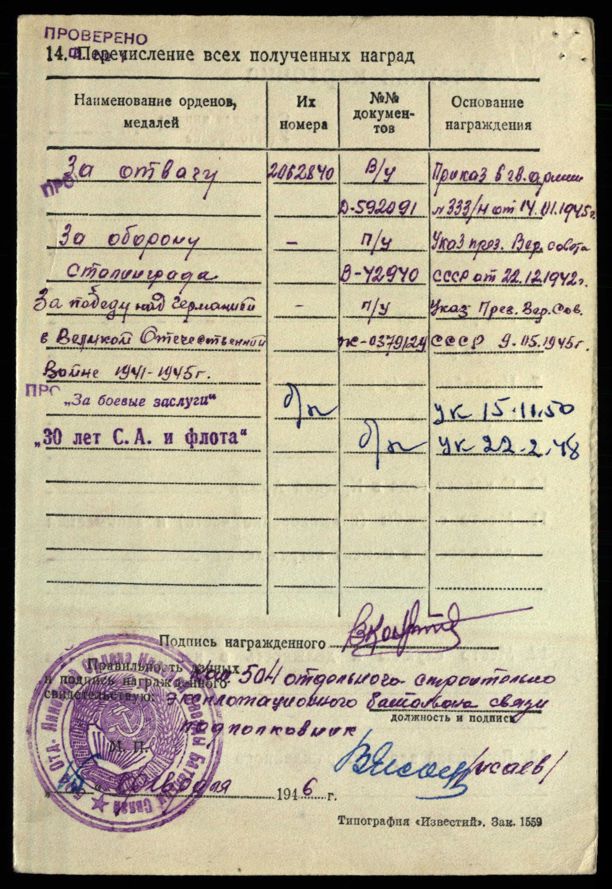 ПРОВЕРЕНО
14. Перечисление всех полученных наград
Наименование орденов, медалей
Их номера
№№ документов
Основание награждения
За отвагу 2062840 В/у Приказ 8 гв. армии
Д-592091 №333/н от 14.01.1945г.
За оборону – п/у Указ през. Вер. совета
Сталинграда В-42940 СССР от 22.12.1942г.
За победу над Германией – п/у Указ През. Вер. Сов.
в Великой Отечественной Ж-0379124 СССР 9.05.1945г.
Войне 1941-1945г.
ПРО
„За боевые заслуги“ б/н УК 15.11.50
„30 лет С. А. и флота“ б/н УК 22.2.48
Подпись награжденного
Правильность данных
и подпись награжденного
свидетельствую:
504 отдельного строительно
эксплотационного батальона связи
должность и подпись
подполковник
М. П.
/Исаев/
1946 г.
Типография «Известий». Зак. 1559